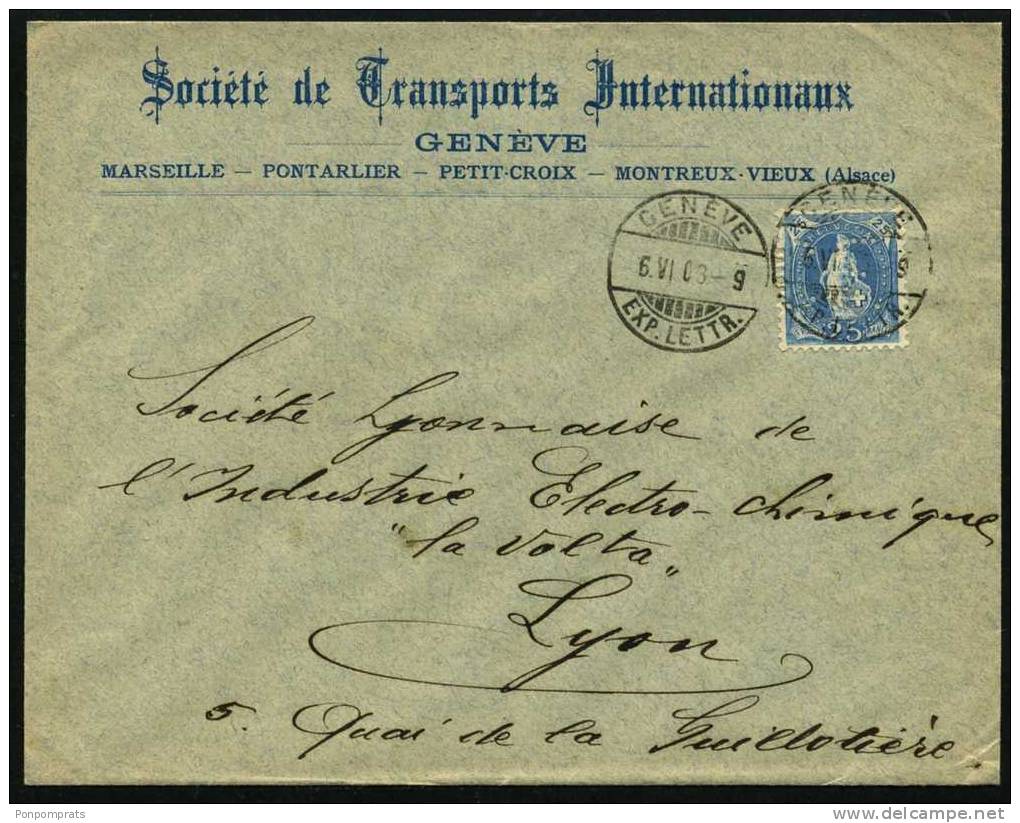 Société de Transports Internationaux
GENÈVE
MARSEILLE — PONTARLIER — PETIT-CROIX — MONTREUX-VIEUX (Alsace)
GENÈVE
6.VI 03–9
EXP. LETTR.
GENÈVE
25 25
9
25
Société Lyonnaise de
l'Industrie Electro-chimique
"la Volta"
Lyon
5. Quai de la Guillotière
Ponpomprats
www.delcampe.net